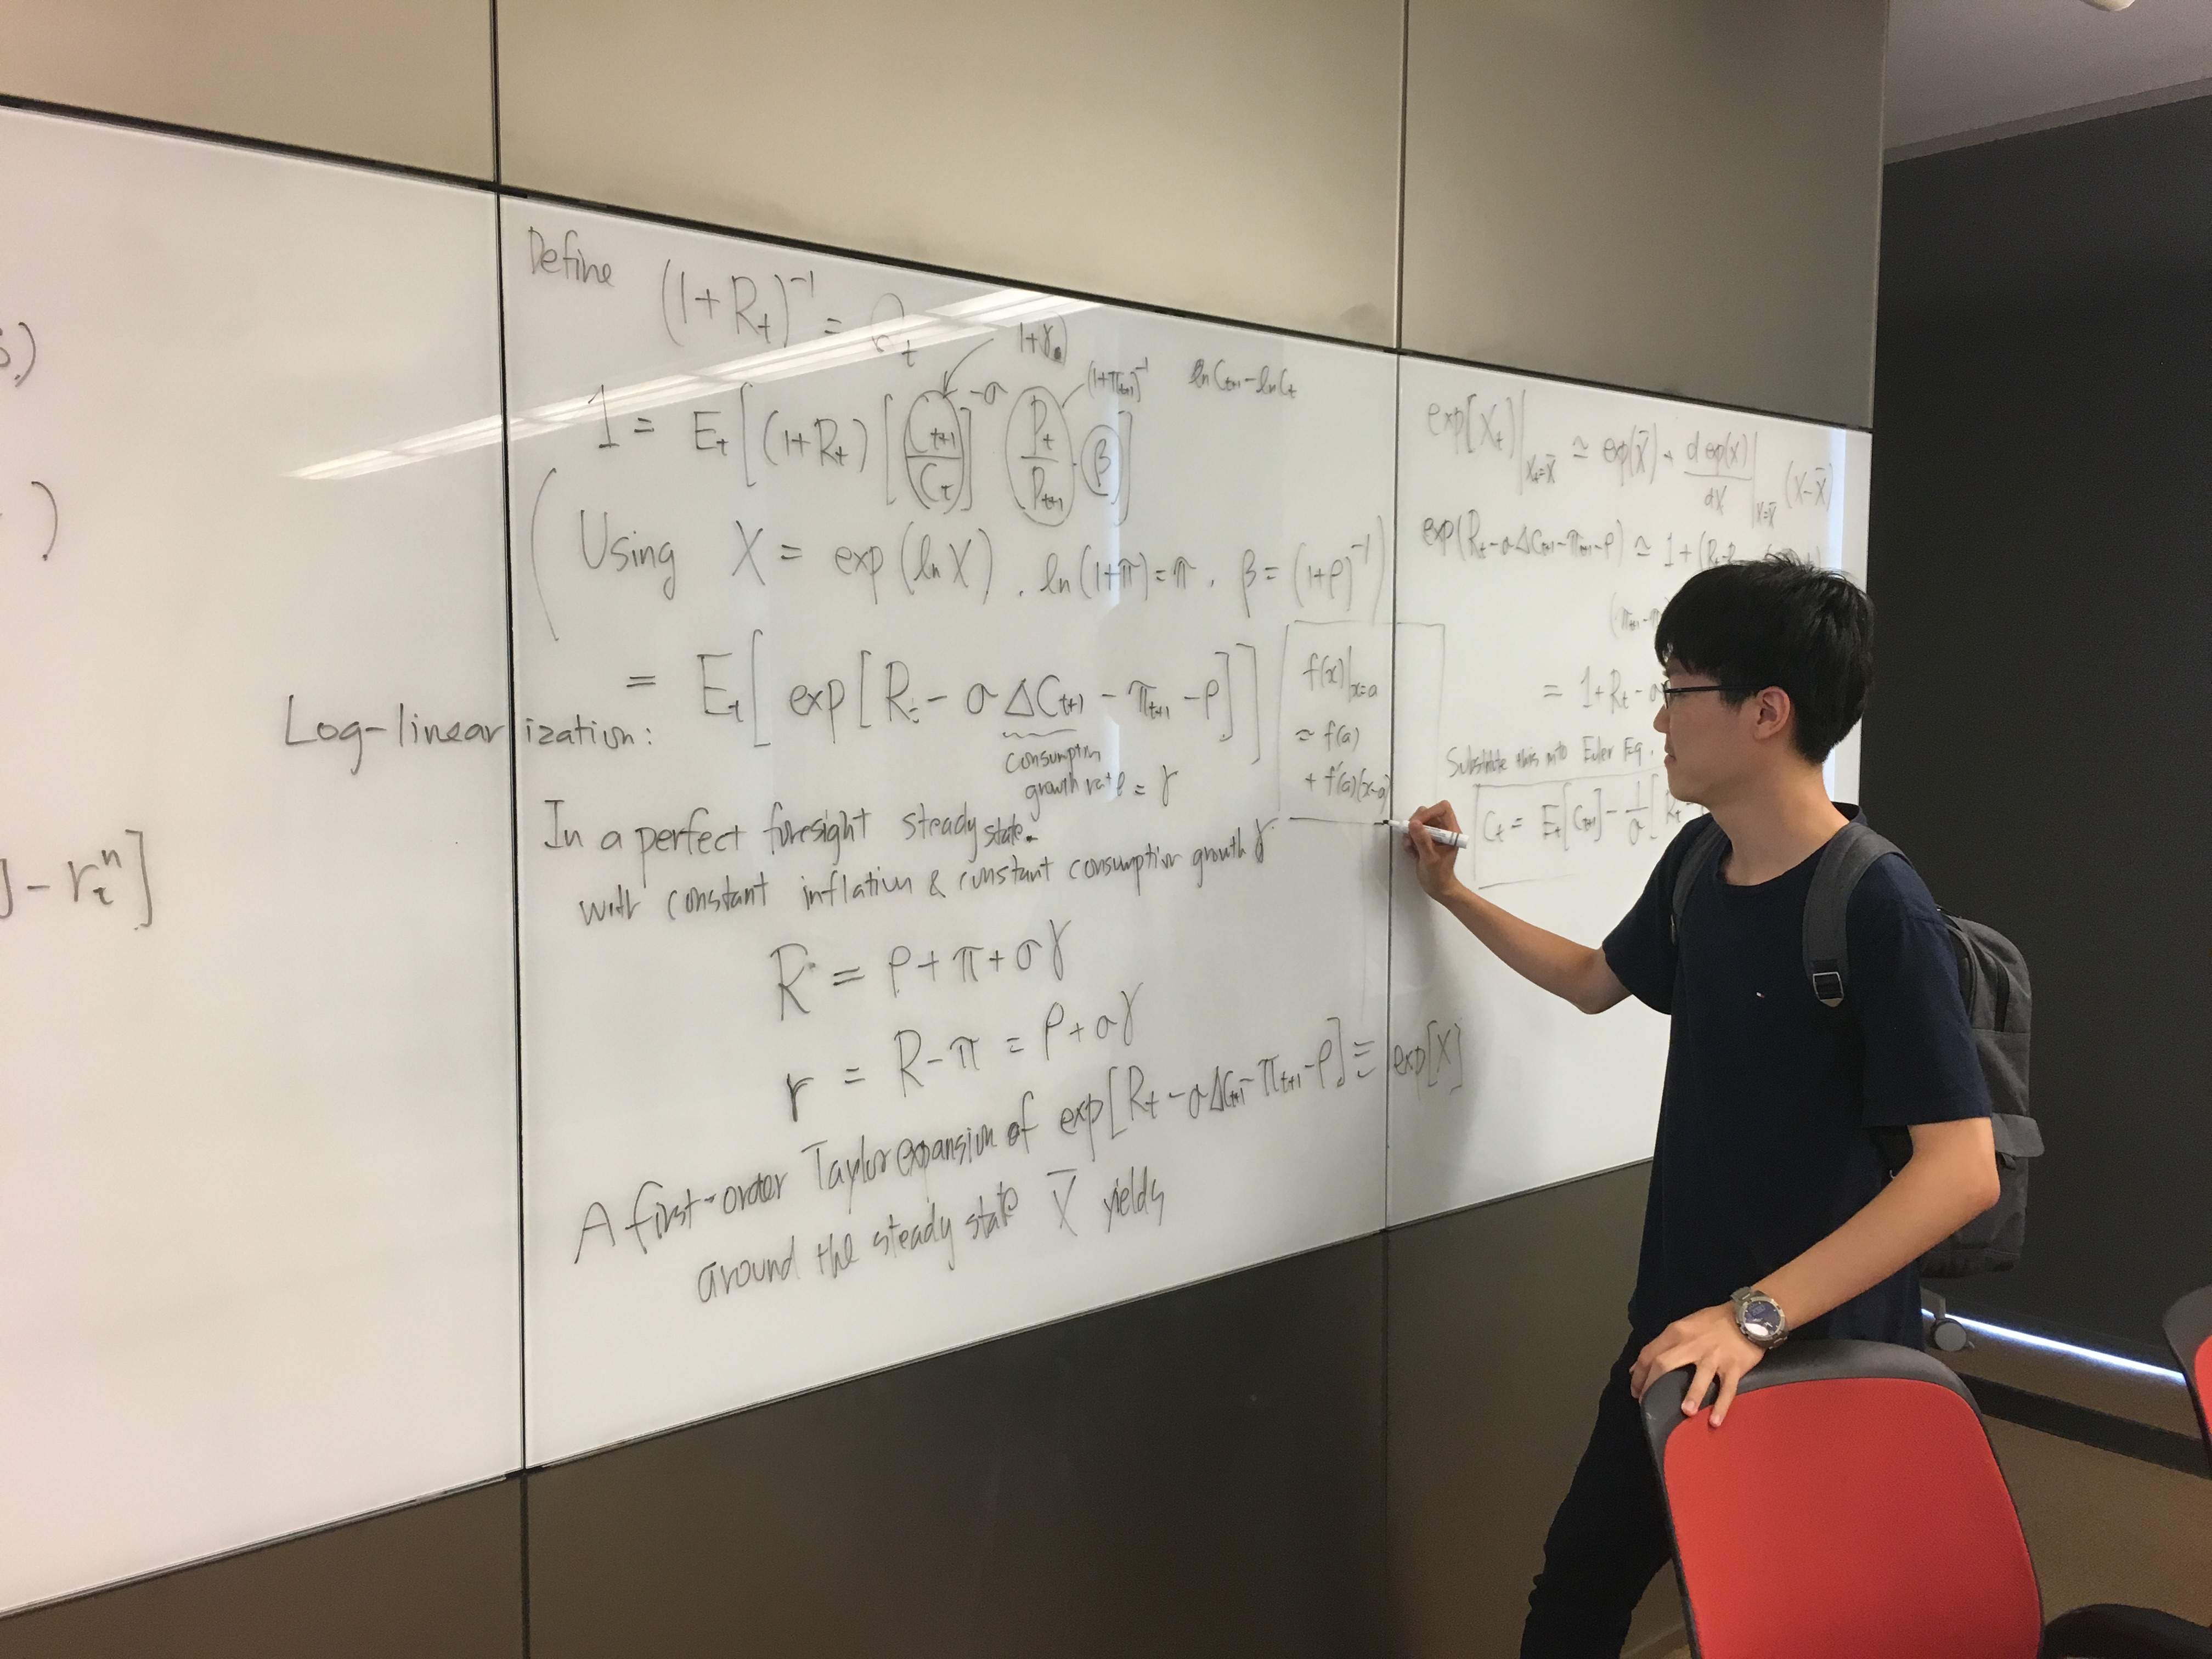 )
)
] - r_t^n ]
Define (1+R_t)^{-1} = Q_t
1+γ
(1+π_{t+1})^{-1} ln C_{t+1} - ln C_t
1 = E_t [ (1+R_t) [ C_{t+1} / C_t ]^{-σ} P_t / P_{t+1} · β ]
( Using X = exp (ln X) . ln (1+π) = π , β = (1+ρ)^{-1} )
= E_t [ exp [ R_t - σ Δ C_{t+1} - π_{t+1} - ρ ] ]
Log-linearization:
consumption
growth rate = γ
In a perfect foresight steady state.
with constant inflation & constant consumption growth γ
R = ρ + π + σγ
r = R - π = ρ + σγ
A first-order Taylor expansion of exp [ R_t - σ Δ C_{t+1} - π_{t+1} - ρ ] ≡ exp[X]
around the steady state X̄ yields
f(x)|_{x=a}
≃ f(a)
+ f'(a)(x-a)
exp[X_t] |_{X_t=X̄} ≃ exp(X̄) + d exp(X) / dX |_{X=X̄} (X-X̄)
exp(R_t - σ Δ C_{t+1} - π_{t+1} - ρ) ≃ 1 + (R_t - R
(π_{t+1} - π
= 1 + R_t - σ
Substitute this into Euler Eq.
C_t = E_t [C_{t+1}] - 1/σ [ R_t -